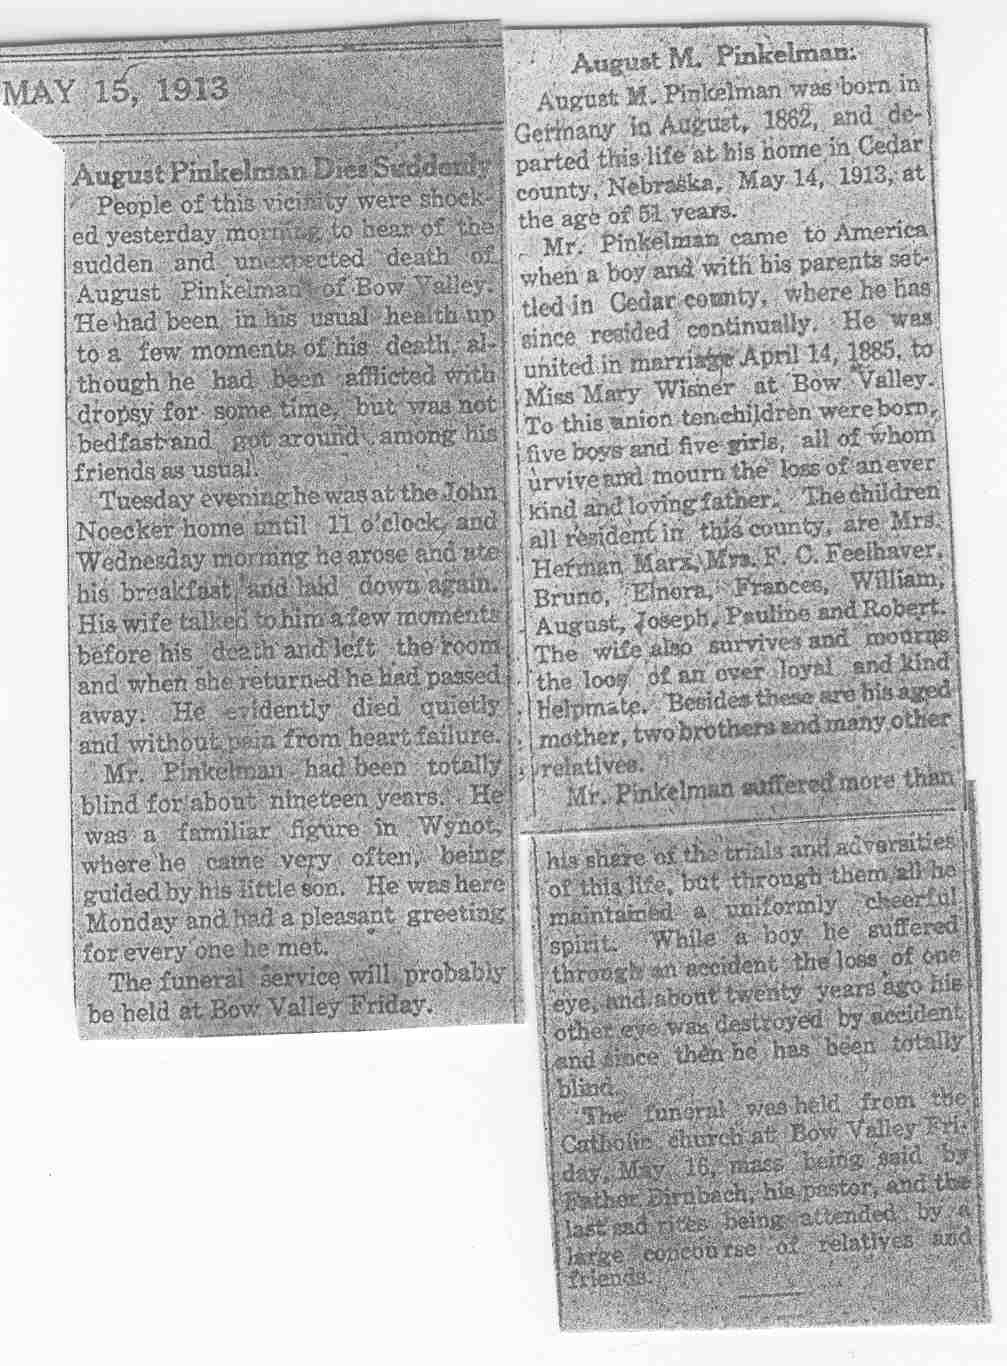 MAY 15, 1913
August Pinkelman Dies Suddenly
People of this vicinity were shock-
ed yesterday morning to hear of the
sudden and unexpected death of
August Pinkelman of Bow Valley.
He had been in his usual health up
to a few moments of his death, al-
though he had been afflicted with
dropsy for some time, but was not
bedfast and got around among his
friends as usual.
Tuesday evening he was at the John
Noecker home until 11 o'clock, and
Wednesday morning he arose and ate
his breakfast and laid down again.
His wife talked to him a few moments
before his death and left the room
and when she returned he had passed
away. He evidently died quietly
and without pain from heart failure.
Mr. Pinkelman had been totally
blind for about nineteen years. He
was a familiar figure in Wynot,
where he came very often, being
guided by his little son. He was here
Monday and had a pleasant greeting
for every one he met.
The funeral service will probably
be held at Bow Valley Friday.
August M. Pinkelman.
August M. Pinkelman was born in
Germany in August, 1862, and de-
parted this life at his home in Cedar
county, Nebraska, May 14, 1913, at
the age of 51 years.
Mr. Pinkelman came to America
when a boy and with his parents set-
tled in Cedar county, where he has
since resided continually. He was
united in marriage April 14, 1885, to
Miss Mary Wisner at Bow Valley.
To this union ten children were born,
five boys and five girls, all of whom
urvive and mourn the loss of an ever
kind and loving father. The children
all resident in this county, are Mrs.
Herman Marx, Mrs. F. C. Feelhaver,
Bruno, Elnora, Frances, William,
August, Joseph, Pauline and Robert.
The wife also survives and mourns
the loos of an over loyal and kind
Helpmate. Besides these are his aged
mother, two brothers and many other
relatives.
Mr. Pinkelman suffered more than
his share of the trials and adversities
of this life, but through them all he
maintained a uniformly cheerful
spirit. While a boy he suffered
through an accident the loss of one
eye, and about twenty years ago his
other eye was destroyed by accident
and since then he has been totally
blind.
The funeral was held from the
Catholic church at Bow Valley Fri-
day, May 16, mass being said by
Father Dirnbach, his pastor, and the
last sad rites being attended by a
large concourse of relatives and
friends.